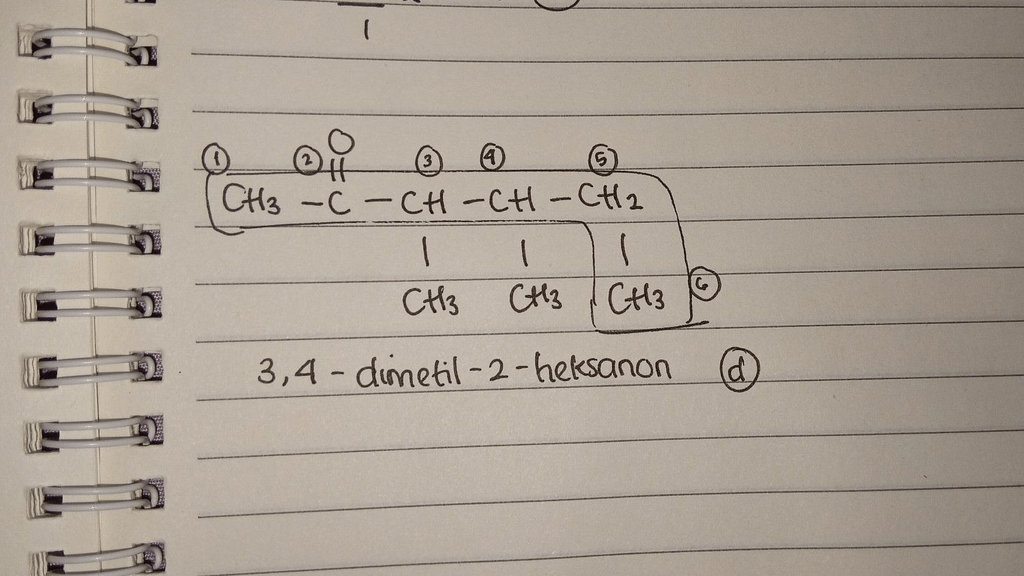 1
① ② O ③ ④ ⑤
||
CH3 - C - CH - CH - CH2
| | |
CH3 CH3 CH3 ⑥
3,4 - dimetil - 2 - heksanon ⓓ